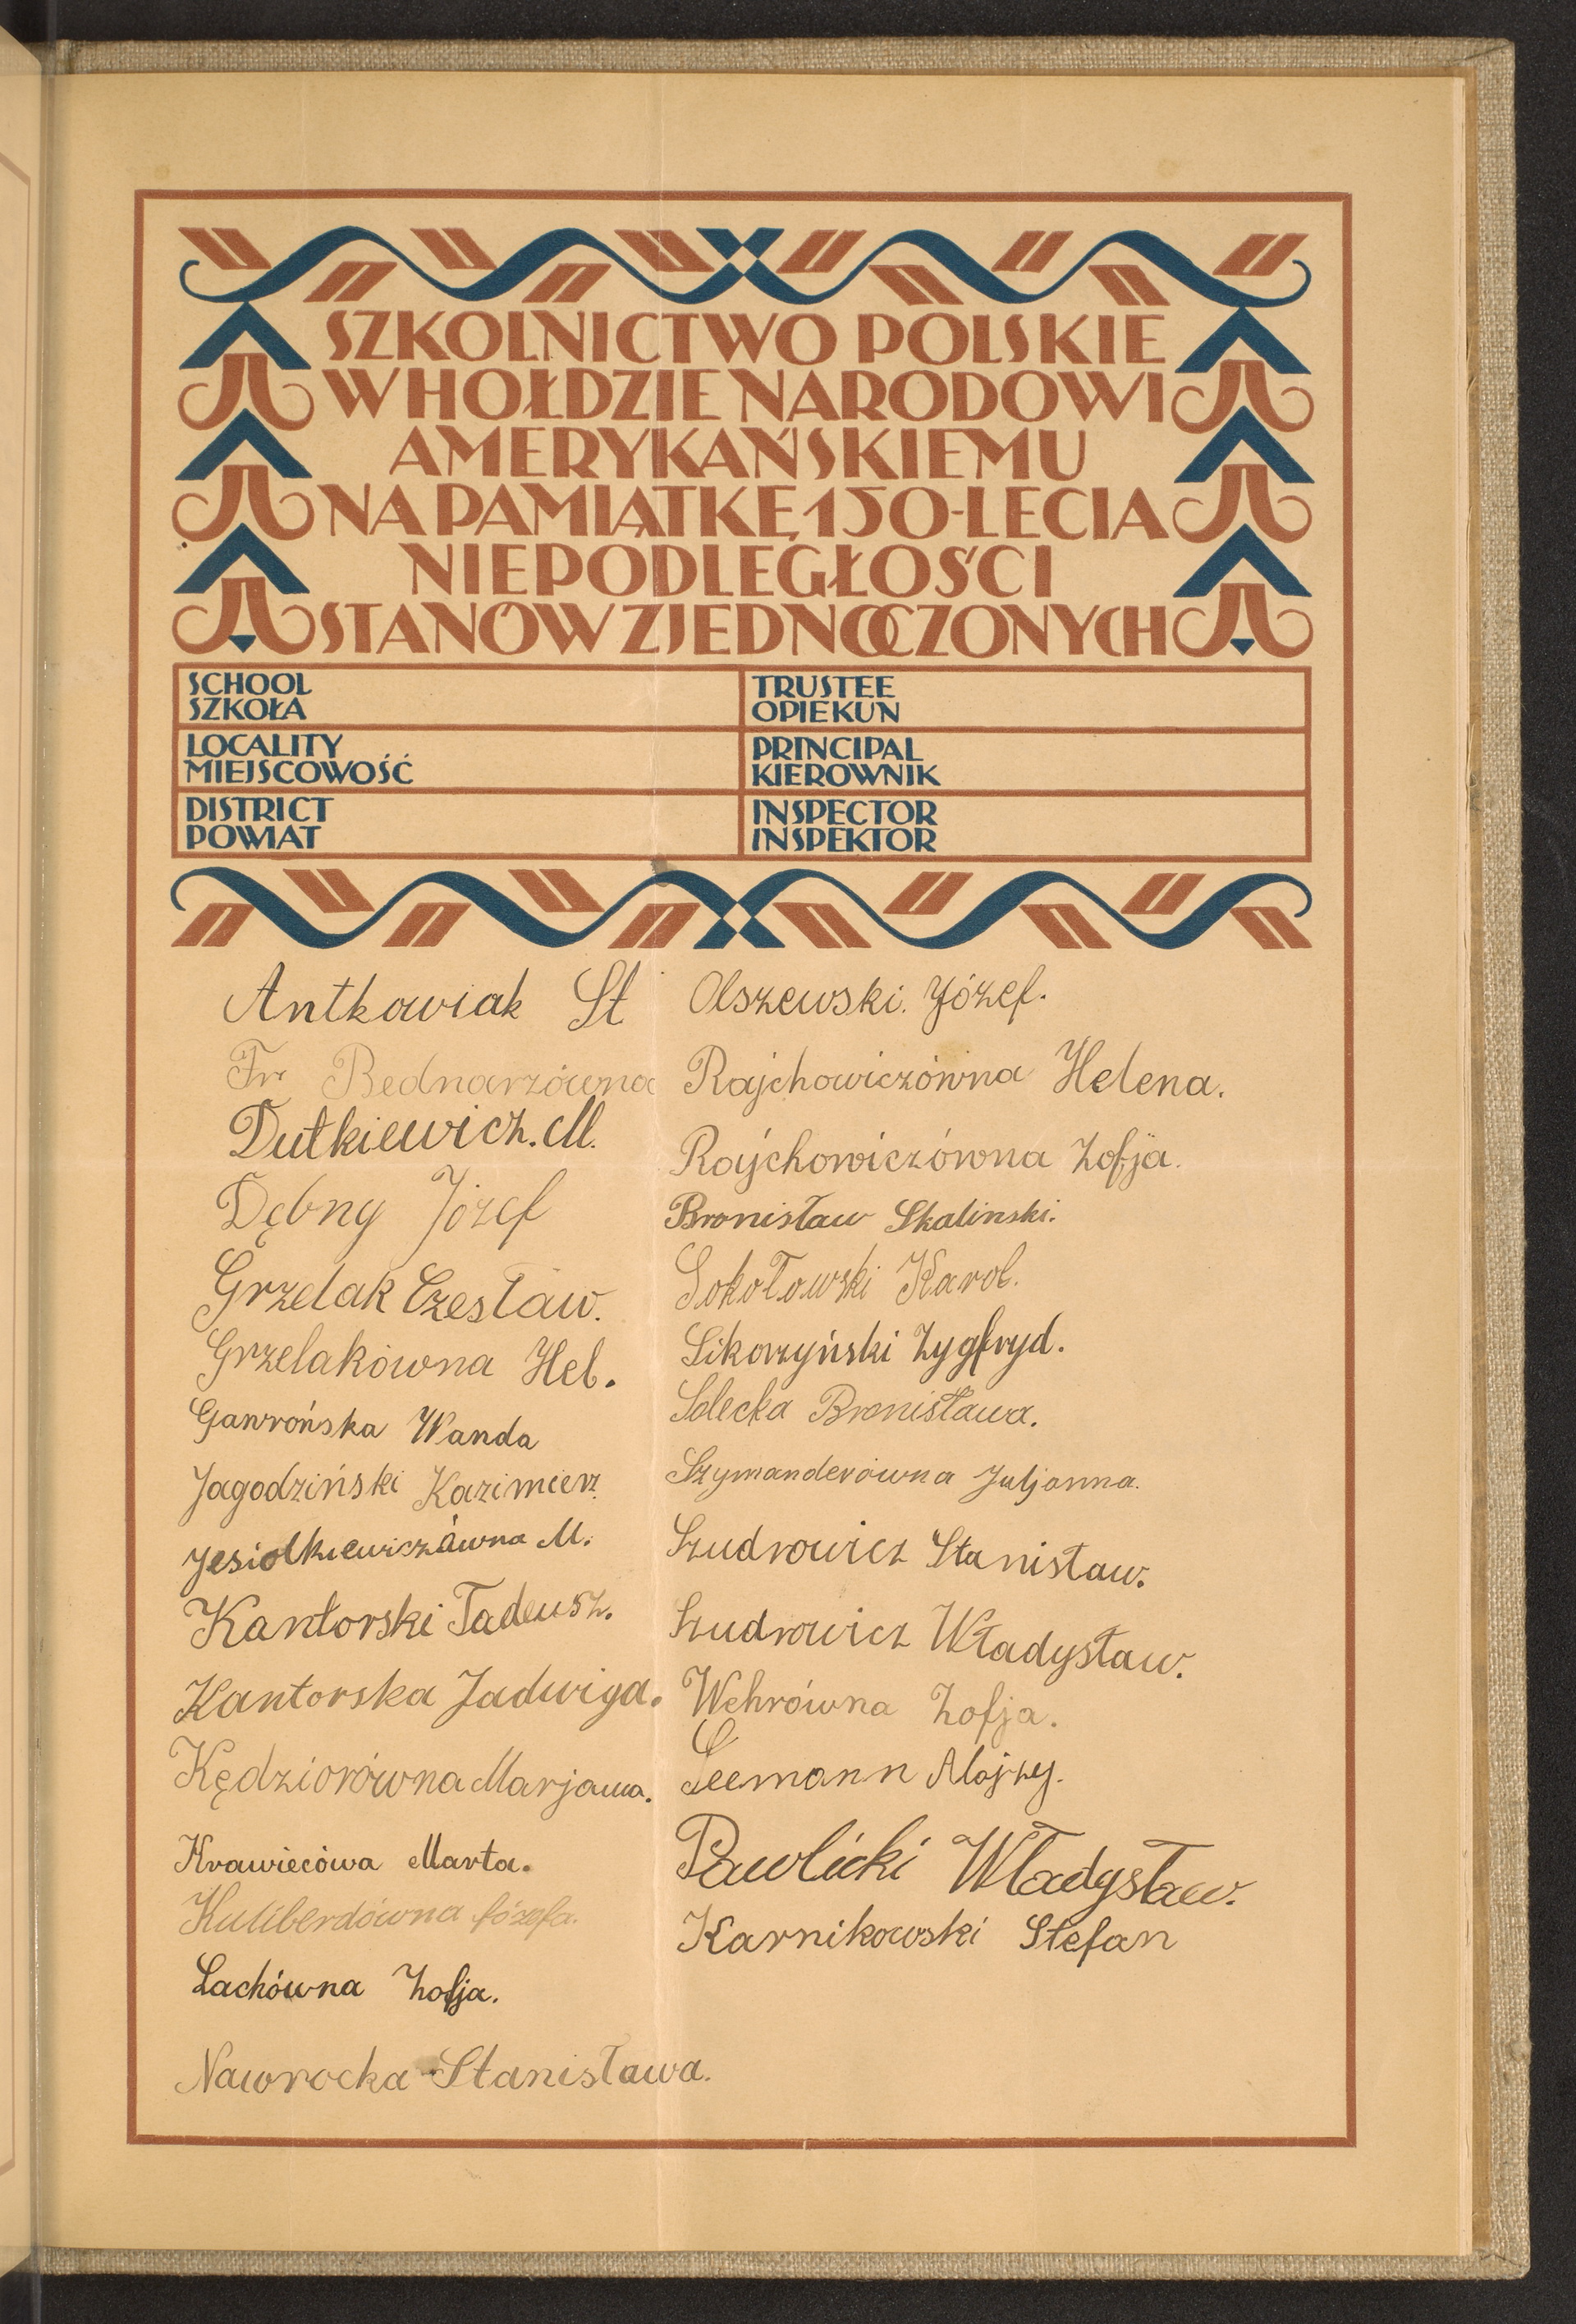 SZKOLNICTWO POLSKIE
W HOŁDZIE NARODOWI
AMERYKAŃSKIEMU
NA PAMIĄTKĘ 150-LECIA
NIEPODLEGŁOŚCI
STANÓW ZJEDNOCZONYCH
SCHOOL
SZKOŁA
LOCALITY
MIEJSCOWOŚĆ
DISTRICT
POWIAT
TRUSTEE
OPIEKUN
PRINCIPAL
KIEROWNIK
INSPECTOR
INSPEKTOR
Antkowiak St
Fr Bednarzówna
Dutkiewicz. M.
Dębny Józef
Grzelak Czesław.
Grzelakówna Hel.
Gawrońska Wanda
Jagodziński Kazimierz.
Jesiolkiewiczówna M.
Kantorski Tadeusz.
Kantorska Jadwiga.
Kędziorówna Marjanna.
Krawiecówa Marta.
Kuliberdówna Józefa.
Lachówna Zofja.
Nawrocka Stanisława.
Olszewski. Józef.
Rajchowiczówna Helena.
Rajchowiczówna Zofja.
Bronisław Skalinski.
Sokołowski Karol.
Sikorzyński Zygfryd.
Solecka Bronisława.
Szymanderówna Juljanna.
Szudrowicz Stanisław.
Szudrowicz Władysław.
Wehrówna Zofja.
Leemann Alojzy.
Pawlicki Władysław.
Karnikowski Stefan